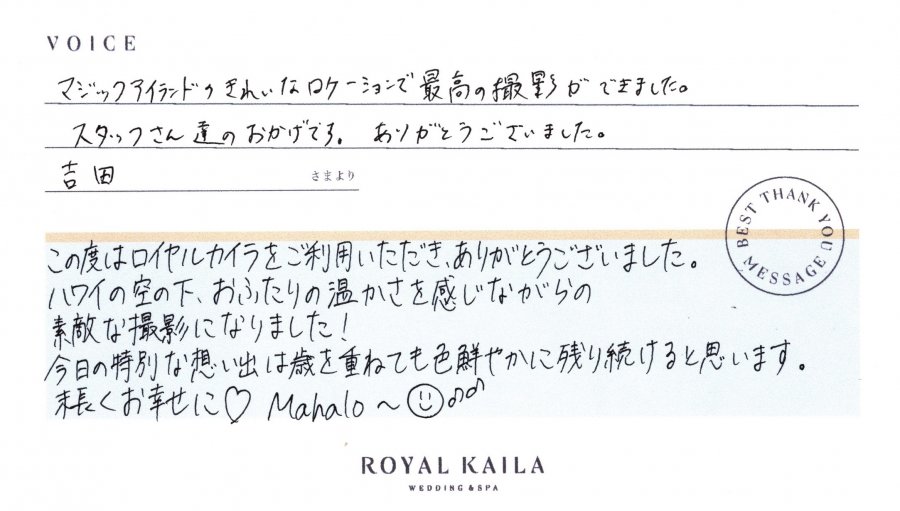 VOICE
マジックアイランドのきれいなロケーションで最高の撮影ができました。
スタッフさん達のおかげです。ありがとうございました。
吉田 さまより
BEST THANK YOU MESSAGE
この度はロイヤルカイラをご利用いただき、ありがとうございました。
ハワイの空の下、おふたりの温かさを感じながらの
素敵な撮影になりました！
今日の特別な想い出は歳を重ねても色鮮やかに残り続けると思います。
末長くお幸せに♡ Mahalo~
ROYAL KAILA
WEDDING & SPA